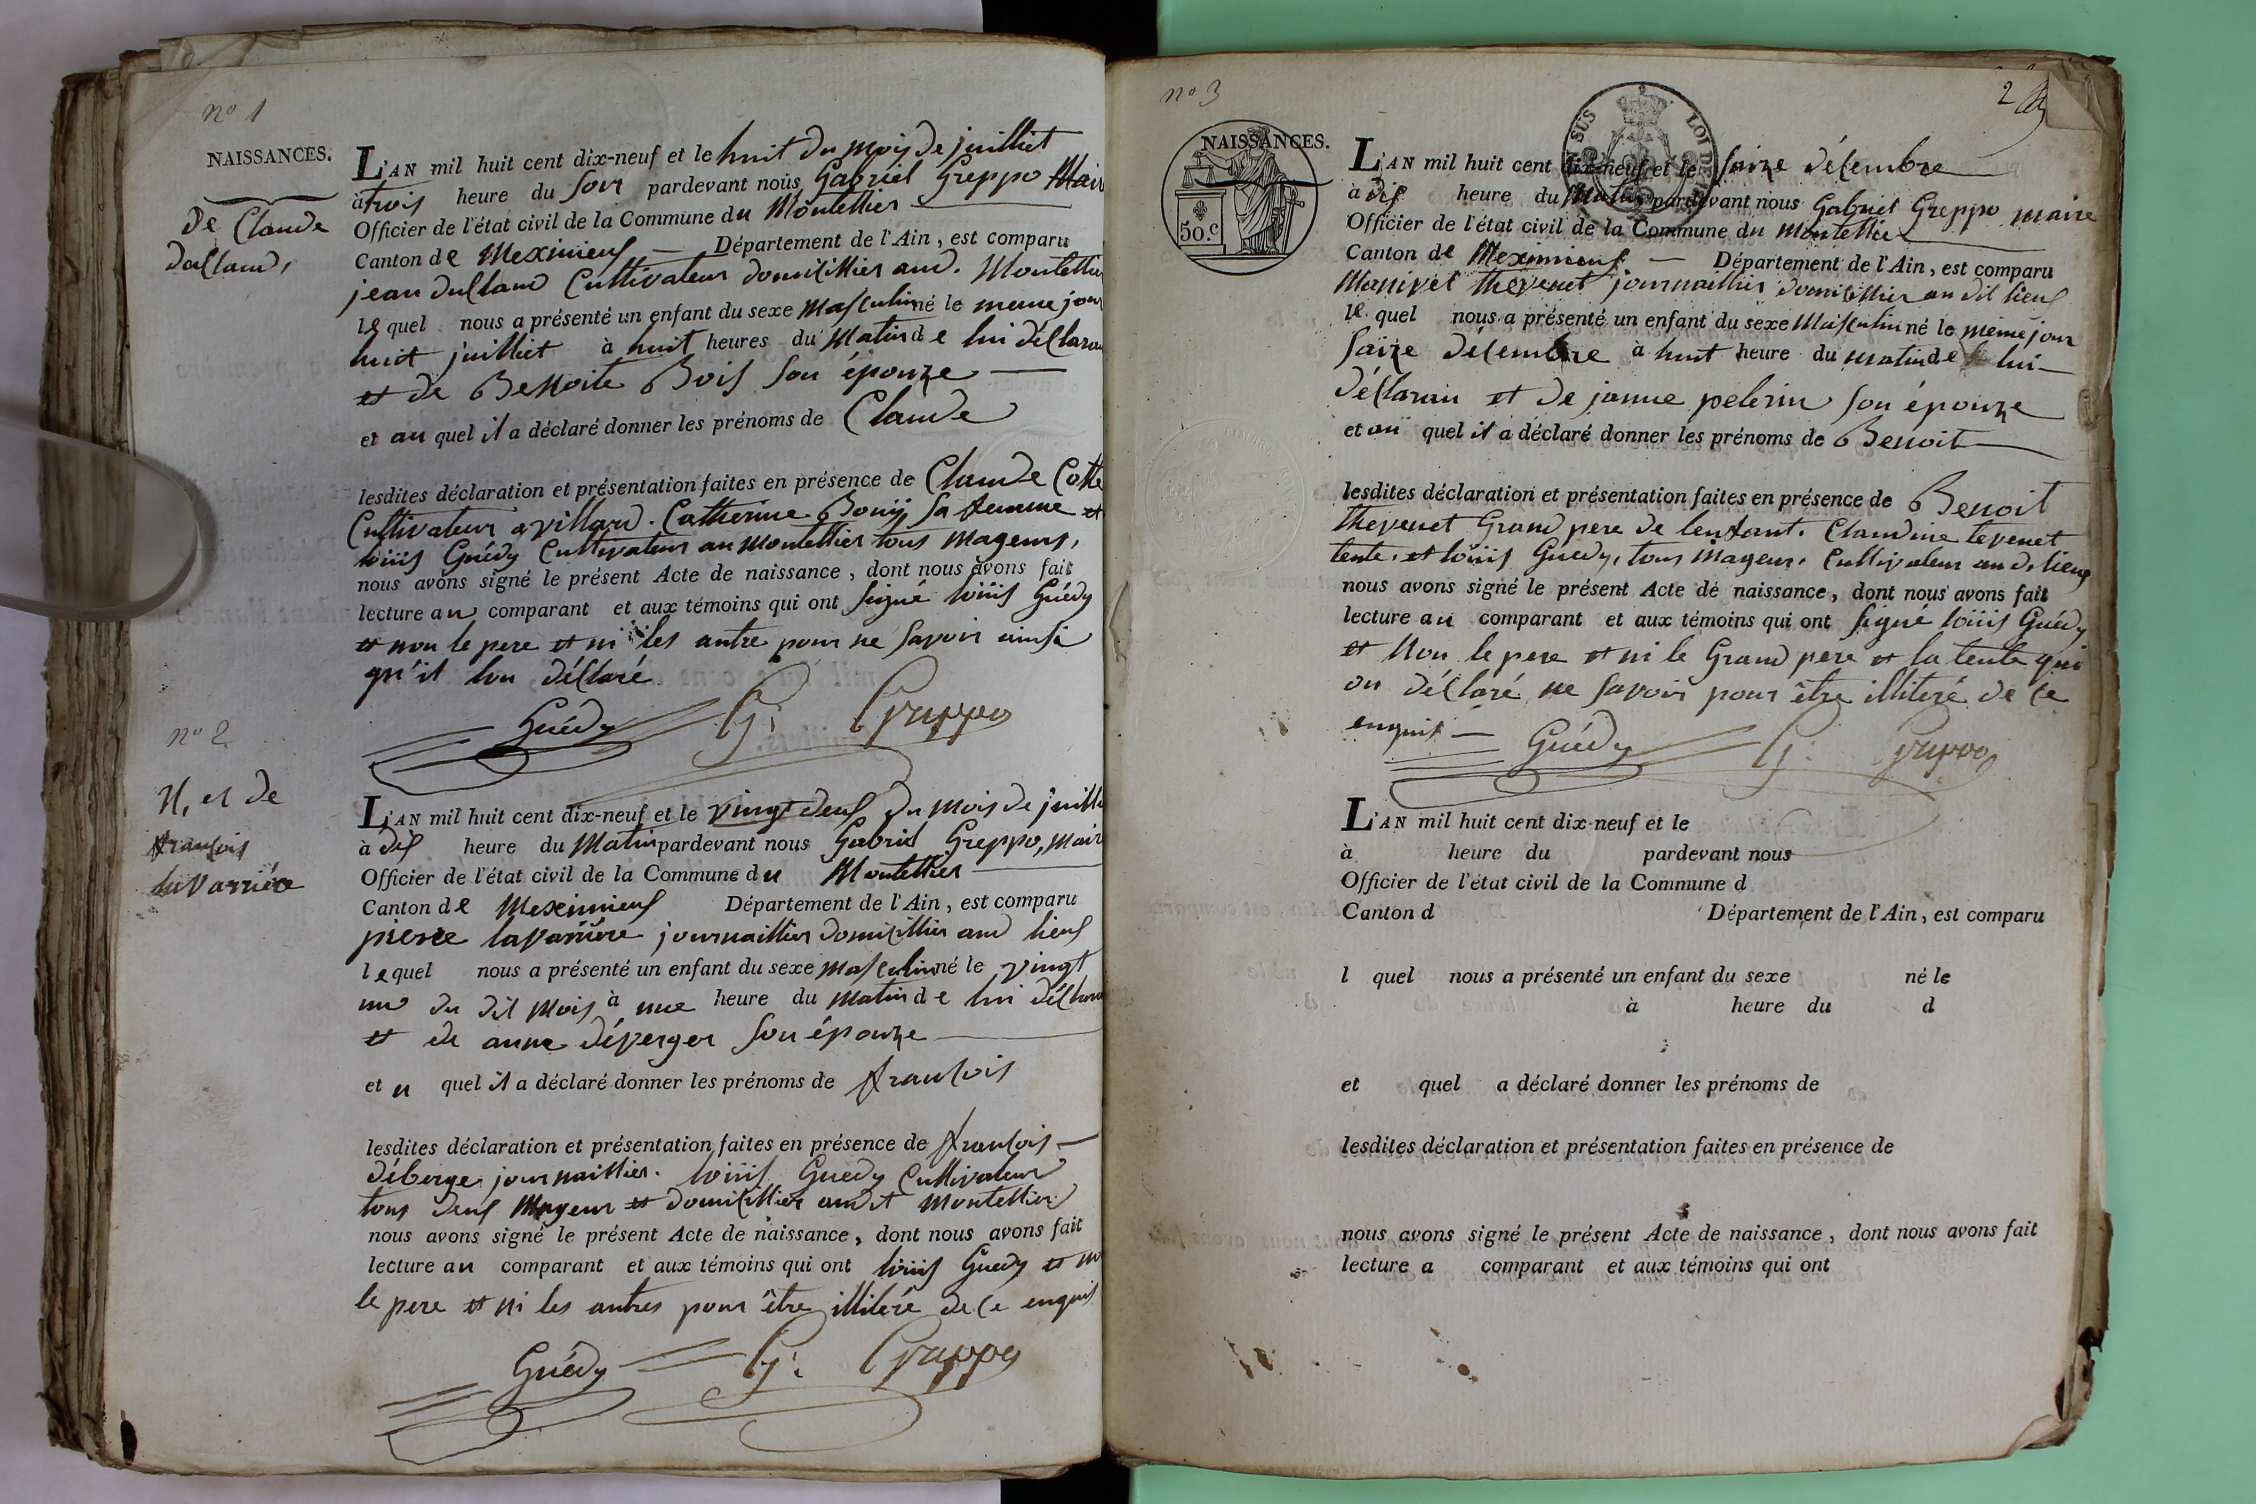 nº 1
NAISSANCES.
de Claude
dulland,
L'AN mil huit cent dix-neuf et le huit du mois de juilliet
à trois heure du soir pardevant nous Gabriel Greppo Mair
Officier de l'état civil de la Commune du Montellier
Canton de Meximieuf — Département de l'Ain, est comparu
jean dulland Cultivateur domicillier aud. Montellier
lequel nous a présenté un enfant du sexe masculin né le meme jour
huit juilliet à huit heures du matin de lui déclaran
et de Benoite Bois son épouze —
et au quel il a déclaré donner les prénoms de Claude
lesdites déclaration et présentation faites en présence de Claude Cotte
Cultivateur a villard. Catherine Bouÿ sa femme et
loüis Guédy Cultivateur au Montellier tous mageurs,
nous avons signé le présent Acte de naissance, dont nous avons fait
lecture au comparant et aux témoins qui ont signé loüis Guédy
et non le pere et ni les autre pour ne savoir ainsi
qu'il lon déclaré
Guédy G: Greppo
nº 2
N. et de
francois
lavarriére
L'AN mil huit cent dix-neuf et le vingt deux du mois de juillie
à dix heure du Matin pardevant nous Gabriel Greppo, mair
Officier de l'état civil de la Commune du Montellier
Canton de Meximieuf Département de l'Ain, est comparu
pierre lavarriere journaillier domicillier aud lieux
lequel nous a présenté un enfant du sexe masculin né le vingt
un du dit mois à une heure du matin de lui déclaran
et de anne déverger son épouze
et u quel il a déclaré donner les prénoms de francois
lesdites déclaration et présentation faites en présence de francois —
déberge journaillier. loüis Guedy Cultivateur
tous deux Mageur et domicillier audit Montellier
nous avons signé le présent Acte de naissance, dont nous avons fait
lecture au comparant et aux témoins qui ont loüis Guedy et no
le pere et ni les autres pour être illiteré de ce enquis
Guédy G: Greppo
nº 3
2
NAISSANCES.
50.c
L'AN mil huit cent dix-neuf et le saize décembre
à dix heure du Matin pardevant nous Gabriel Greppo maire
Officier de l'état civil de la Commune du Montellier
Canton de Meximieuf — Département de l'Ain, est comparu
Manivet thevenet journaillier domicillier au dit lieux
lequel nous a présenté un enfant du sexe Masculin né le même jour
saize décembre à huit heure du matin de lui —
déclaran et de janne pelerin son épouze
et au quel il a déclaré donner les prénoms de Benoit —
lesdites déclaration et présentation faites en présence de Benoit
thevenet Grand pere de lenfant. Claudine tevenet
tente. et loüis Guedy, tous mageur. Cultivateur au d. lieux
nous avons signé le présent Acte de naissance, dont nous avons fait
lecture au comparant et aux témoins qui ont signé loüis Guédy
et Non le pere et ni le Grand pere et la tente qui
on déclaré ne savoir pour être illiteré de ce
enquis —
Guédy G: Greppo
L'AN mil huit cent dix-neuf et le
à heure du pardevant nous
Officier de l'état civil de la Commune d
Canton d Département de l'Ain, est comparu
l quel nous a présenté un enfant du sexe né le
à heure du d
et quel a déclaré donner les prénoms de
lesdites déclaration et présentation faites en présence de
nous avons signé le présent Acte de naissance, dont nous avons fait
lecture a comparant et aux témoins qui ont